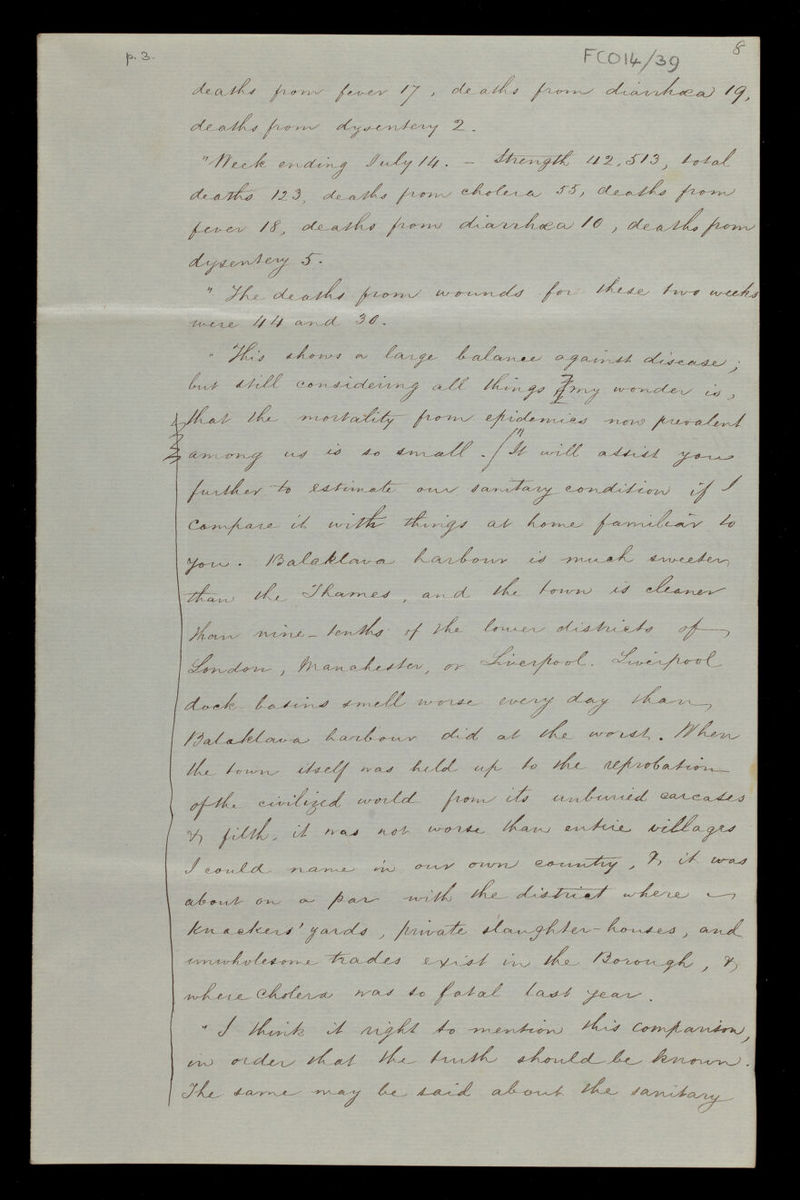 p. 3.
FCO14/39
8
deaths from fever 17, deaths from diarrhœa 19,
deaths from dysentery 2.
"Week ending July 14. – Strength 42,513, total
deaths 123, deaths from cholera 55, deaths from
fever 18, deaths from diarrhœa 10, deaths from
dysentery 5.
"The deaths from wounds for these two weeks
were 44 and 30.
"This shows a large balance against disease;
but still considering all things my wonder is,
that the mortality from epidemics now prevalent
among us is so small. / "It will assist you
further to estimate our sanitary condition if I
compare it with things at home familiar to
you. Balaklava harbour is much sweeter
than the Thames, and the town is cleaner
than nine-tenths of the lower districts of
London, Manchester, or Liverpool. Liverpool
dock basins smell worse every day than
Balaklava harbour did at the worst. When
the town itself was held up to the reprobation
of the civilized world from its unburied carcases
& filth, it was not worse than entire villages
I could name in our own country, & it was
about on a par with the district where
Knackers' yards, private slaughter-houses, and
unwholesome trades exist in the Borough, &
where cholera was so fatal last year.
"I think it right to mention this comparison,
in order that the truth should be known.
The same may be said about the sanitary